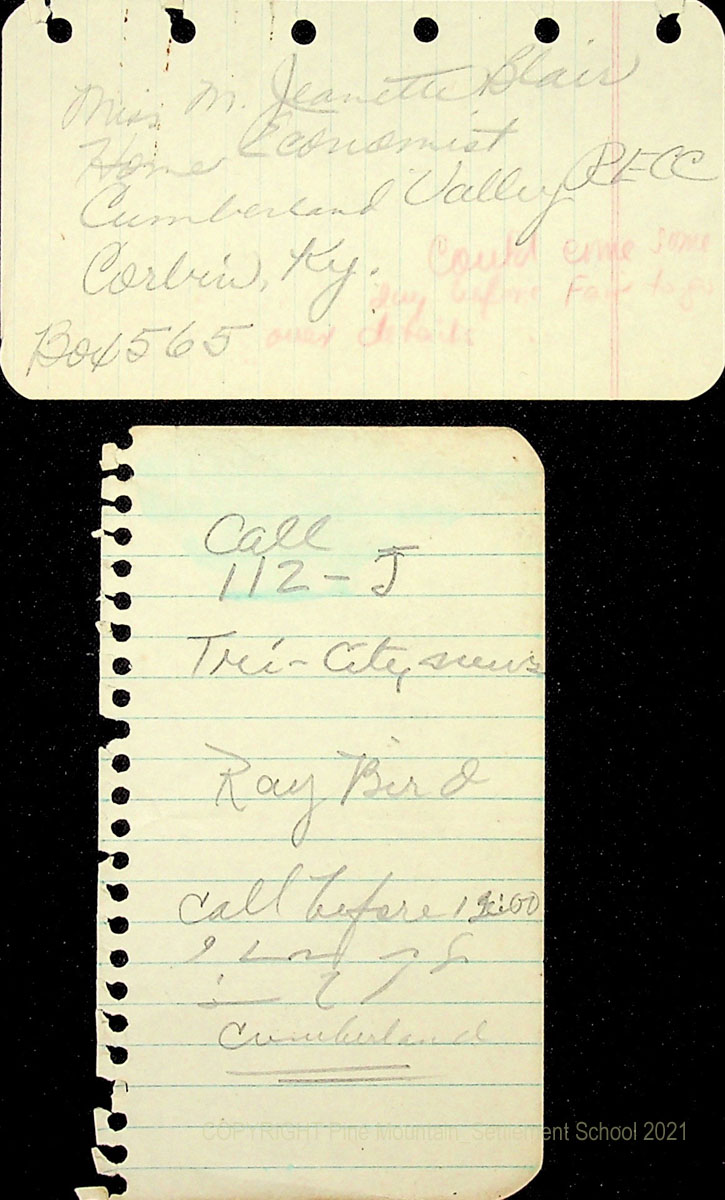 Miss M. Jeanette Blair
Home Economist
Cumberland Valley RECC
Corbin, Ky.
Could come some
day before Fair to go
over details
Box 565
Call
112-J
Tri-City news
Ray Bird
Call before 12:00
Cumberland
COPYRIGHT Pine Mountain Settlement School 2021